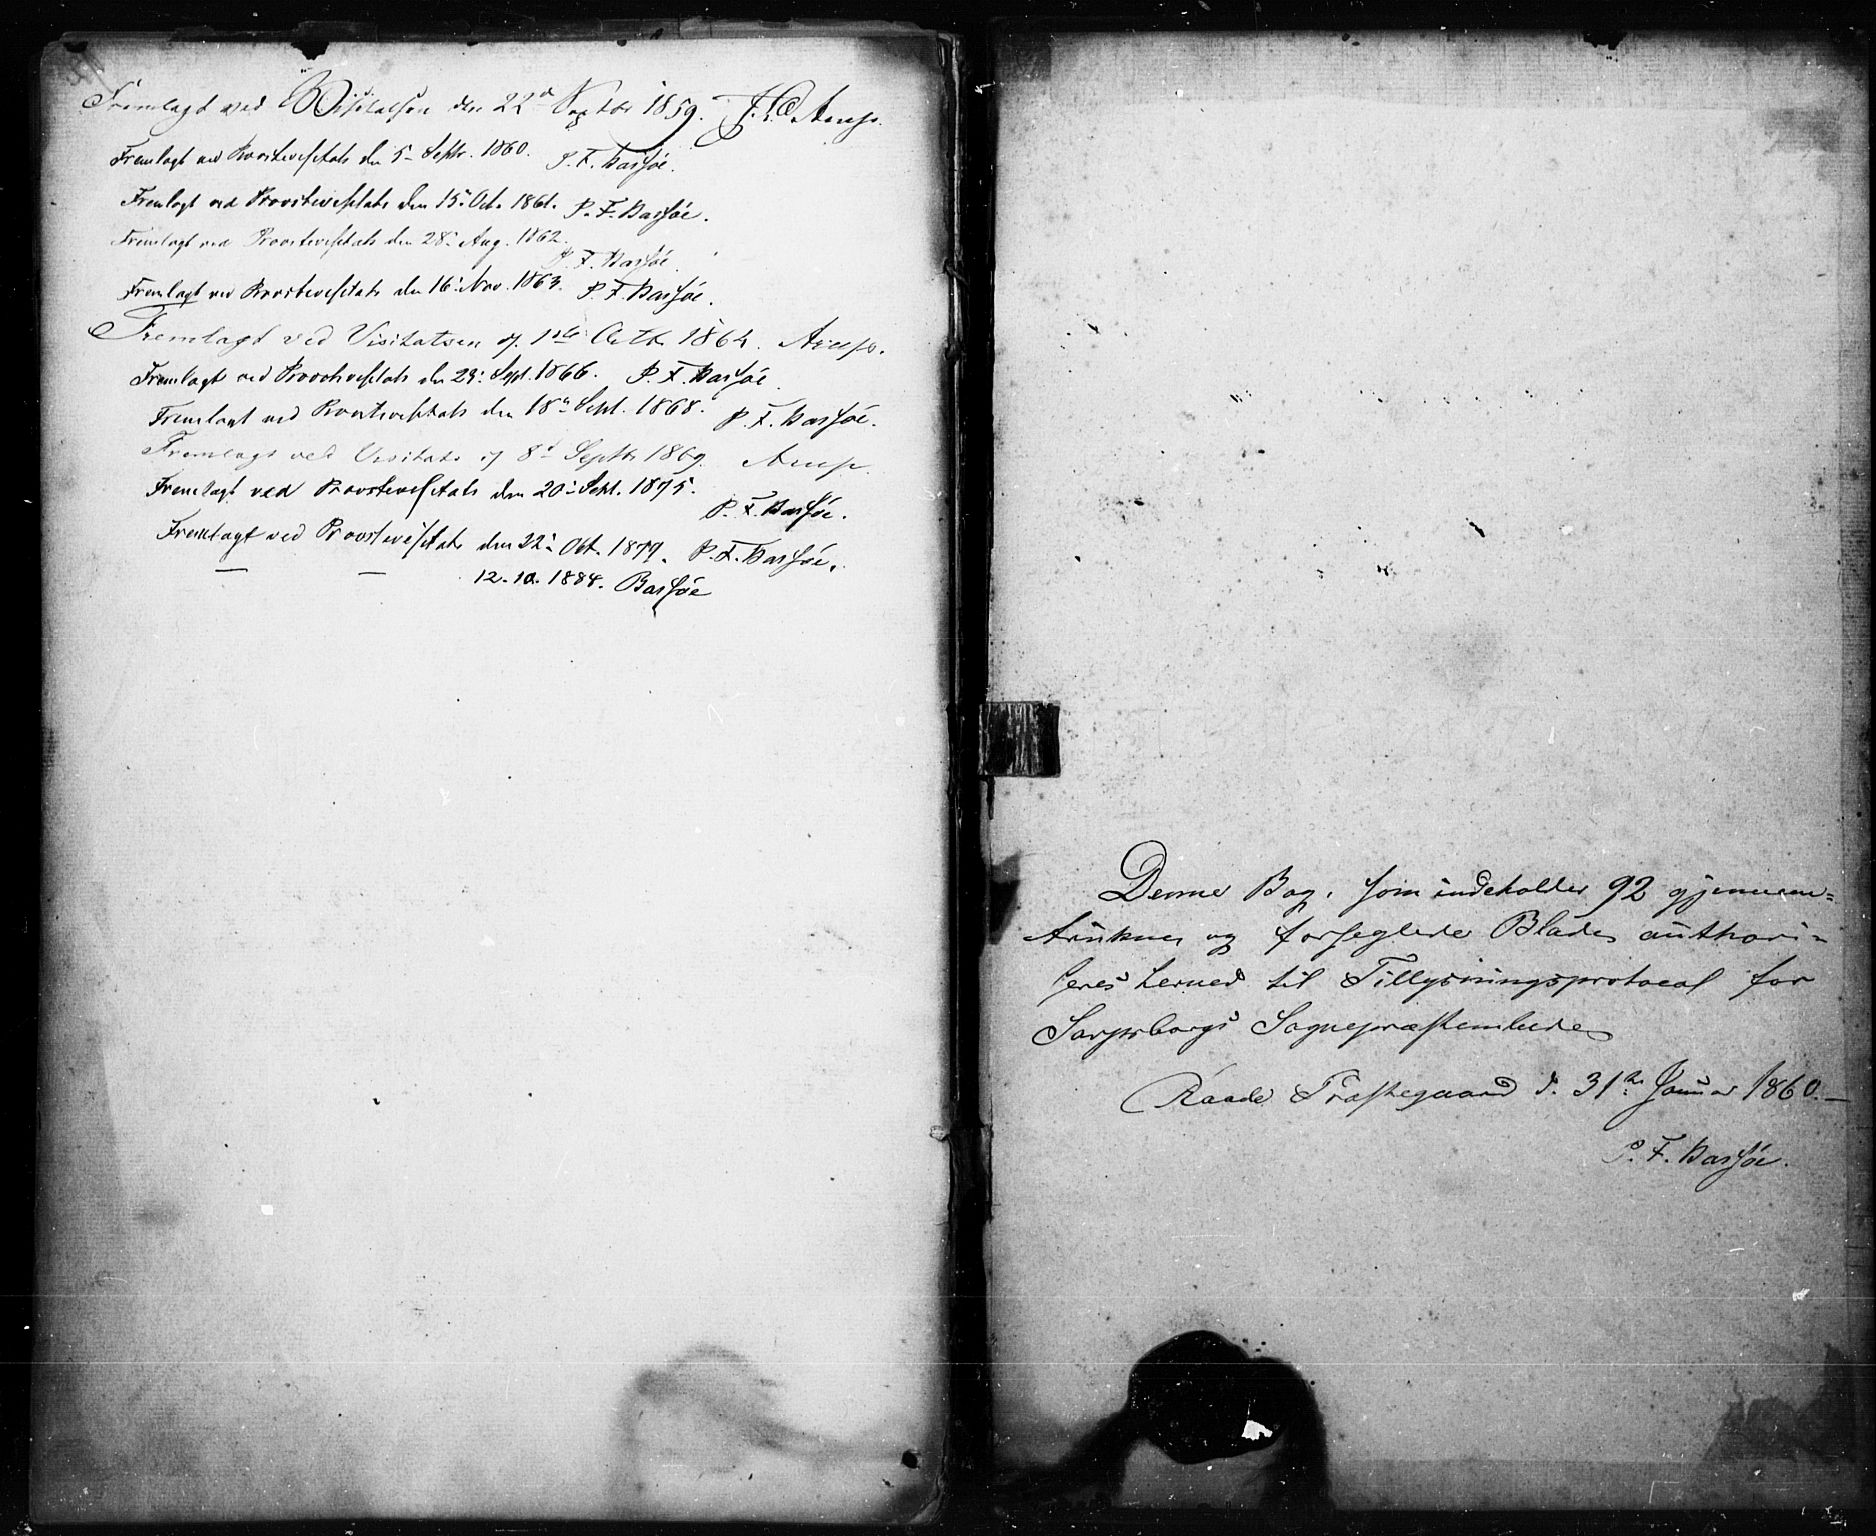 Fremlagt ved Visitatsen den 22d Septbr 1859. J. L. Arup.
Fremlagt ved Provstevisitats den 5- Septr. 1860. P. F. Bassøe.
Fremlagt ved Provstevisitats den 15- Oct. 1861. P. F. Bassøe.
Fremlagt ved Provstevisitats den 28- Aug. 1862.
P. F. Bassøe.
Fremlagt ved Provstevisitats den 16- Nov. 1863. P. F. Bassøe.
Fremlagt ved Visitatsen d. 1ste Octbr 1864. Arup.
Fremlagt ved Provstevisitats den Sept. 1866. P. F. Bassøe.
Fremlagt ved Provstevisitats den 18- Sept. 1868. P. F. Bassøe.
Fremlagt ved Visitats d 8d Septbr 1869. Arup.
Fremlagt ved Provstevisitats den 20- Sept. 1875.
P. F. Bassøe.
Fremlagt ved Provstevisitats den 22- Oct. 1879. P. F. Bassøe.
— — 12-10-1884. Bassøe
Denne Bog, som indeholder 92 gjennem-
trukne og forseglede Blade, authori-
seres herved til Tillysningsprotocol for
Sarpsborgs Sognepræstembede
Raade Præstegaard d. 31te Januar 1860.—
P. F. Bassøe.